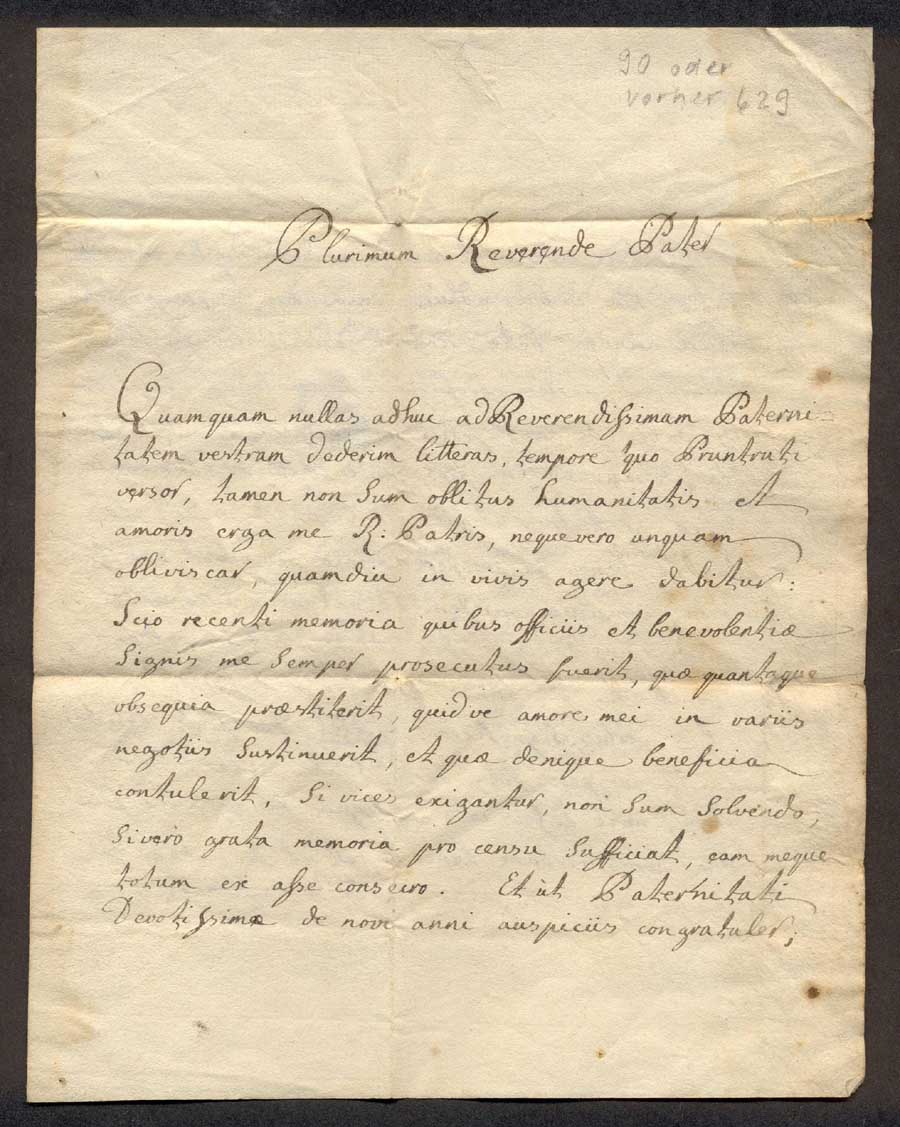 90 oder
vorher 629
Plurimum Reverende Pater
Quamquam nullas adhuc ad Reverendissimam Paterni-
tatem vestram dederim litteras, tempore quo Pruntruti
versor, tamen non sum oblitus humanitatis et
amoris erga me R: Patris, neque vero unquam
obliviscar, quamdiu in vivis agere dabitur:
Scio recenti memoria quibus officiis et benevolentiæ
signis me semper prosecutus fuerit, quæ quantaque
obsequia præstiterit, quidve amore mei in variis
negotiis sustinuerit, et quæ denique beneficia
contulerit, si vices exigantur, non sum solvendo,
si verò grata memoria pro censu sufficiat, eam meque
totum ex asse consecro. Et ùt Paternitati
Devotissimæ de novi anni auspiciis congratuler;